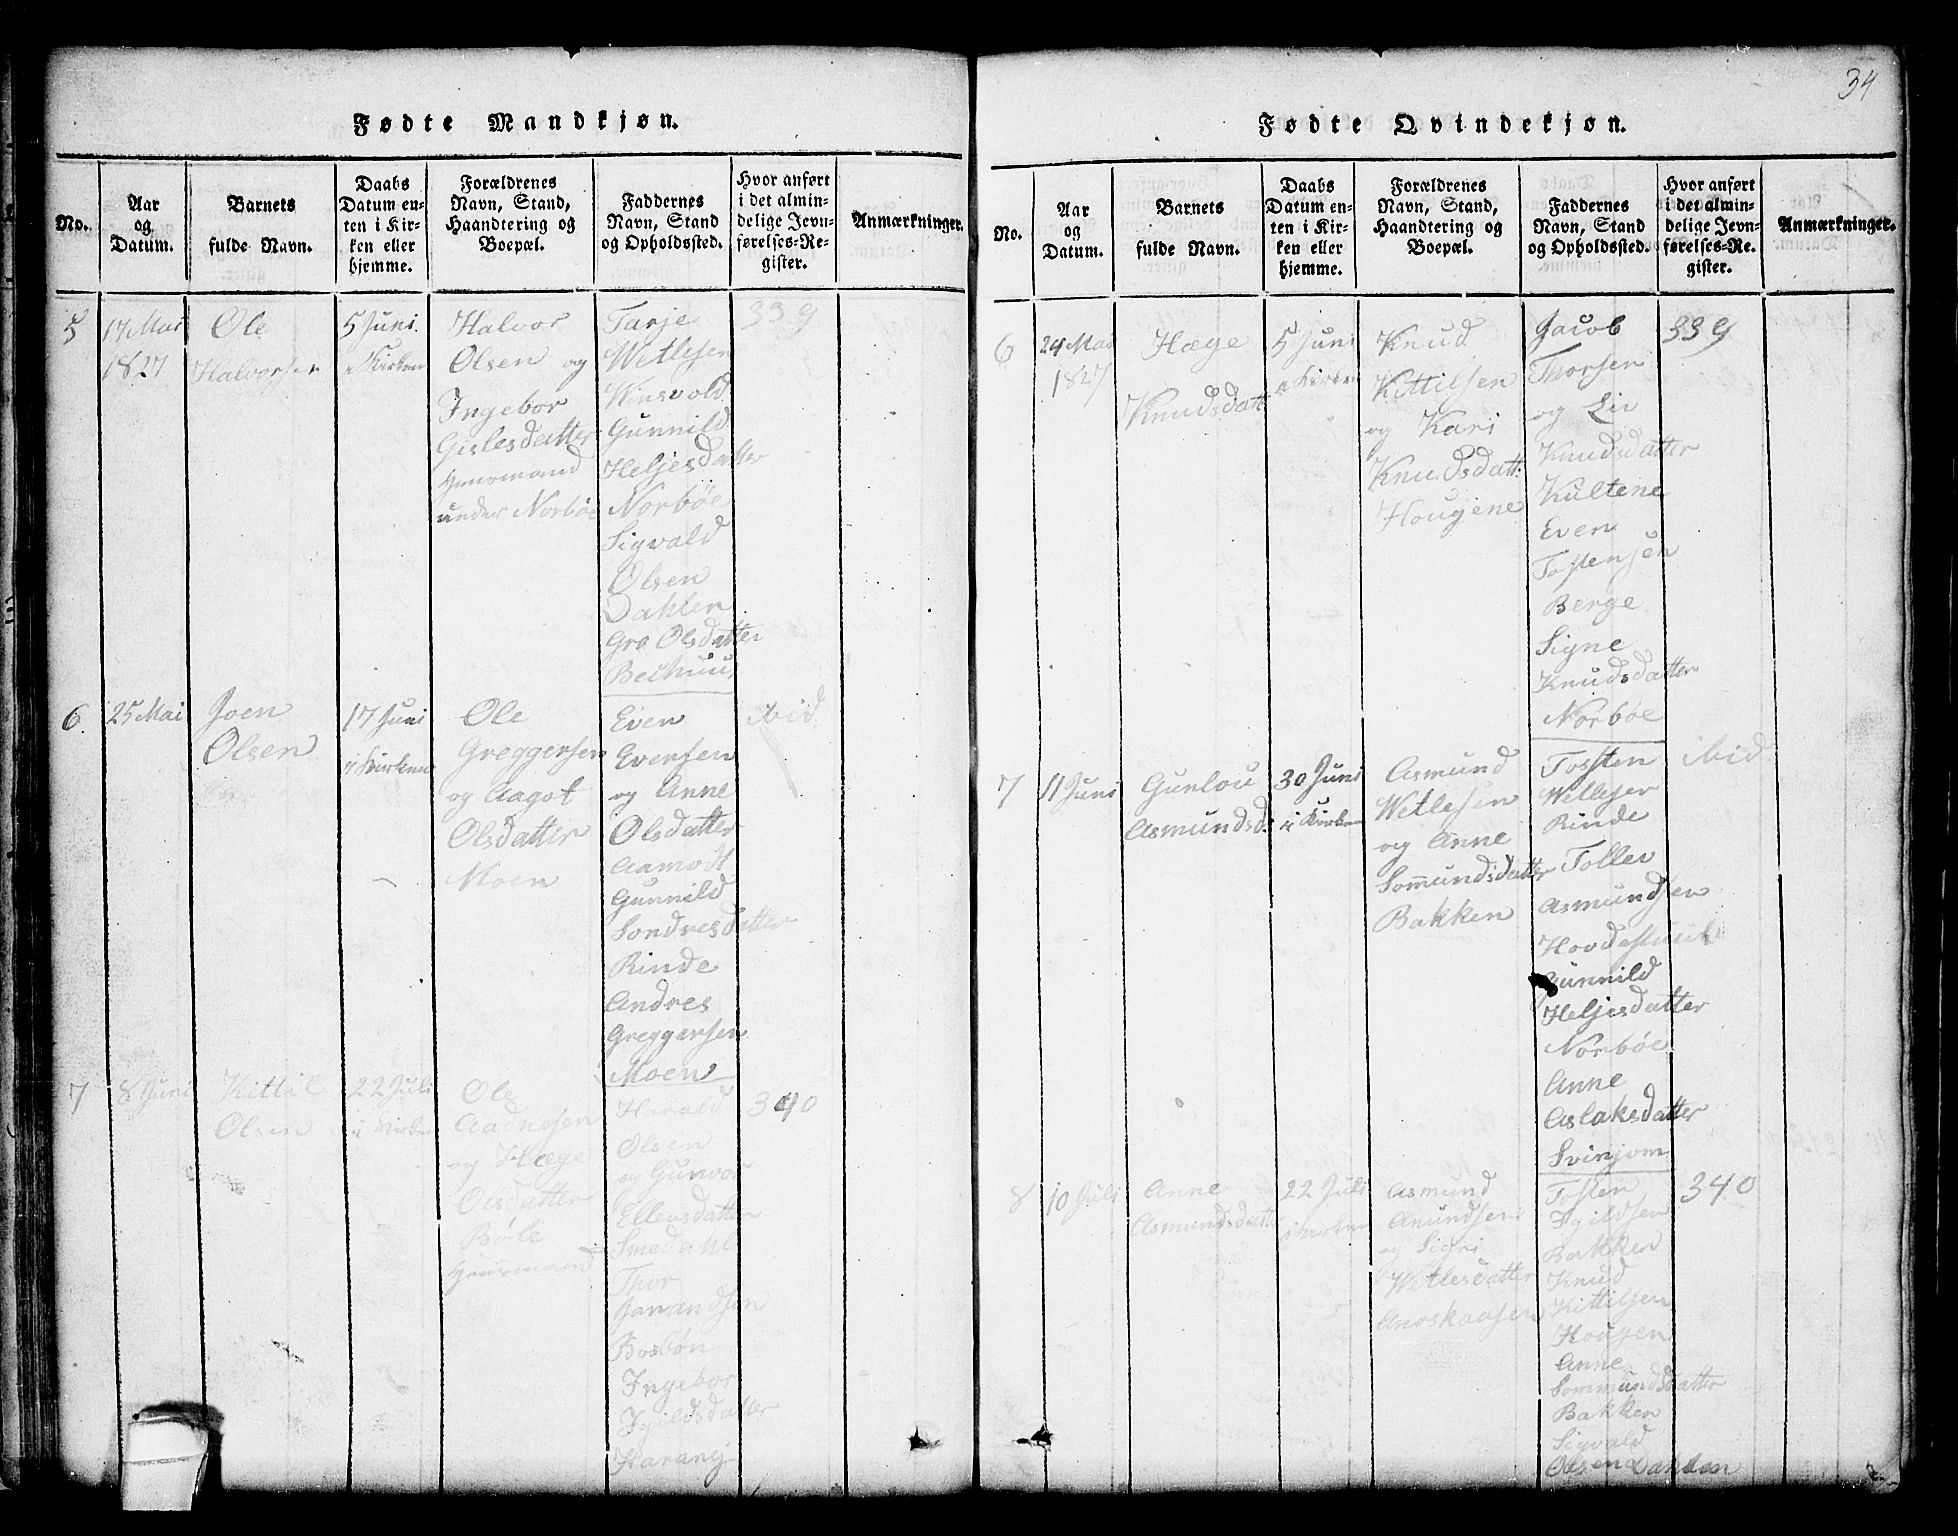 34
Fødte Mandkjøn.
No.
Aar
og
Datum.
Barnets
fulde Navn.
Daabs
Datum en-
ten i Kir-
ken eller
hjemme.
Forældrenes
Navn, Stand,
Haandtering og
Boepæl.
Faddernes
Navn, Stand
og Opholdssted.
Hvor anført
i det almin-
delige Jevn-
førelses-Re-
gister.
Anmærkninger.
5
17 Mai
1827
Ole
Halvorsen
5 Juni
i Kirken
Halvor
Olsen og
Ingebor
Gislesdatter
Huusmand
under Norbøe
Tarje
Wetlesen
Winsvold
Gunnild
Heljesdatter
Norbøe
Sigvald
Olsen
Dahlen
Gro Olsdatter
Bechuus
339
6
25 Mai
Joen
Olsen
17 Juni
i Kirken
Ole
Greggersen
og Aagot
Olsdatter
Moen
Even
Evensen
og Anne
Olsdatter
Aamodt
Gunnild
Sondresdatter
Rinde
Andres
Greggersen
Moen
ibid
7
8 Juni
Kittil
Olsen
22 Juli
i Kirken
Ole
Aadnesen
og Hæge
Olsdatter
Bøle
Huusmand
Harald
Olsen
og Gunvor
Ellevsdatter
Smedahl
Thor
Bosbøn
Ingebor
Igildsdatter
Haranj
340
Fødte Qvindekjøn.
No.
Aar
og
Datum.
Barnets
fulde Navn.
Daabs
Datum en-
ten i Kir-
ken eller
hjemme.
Forældrenes
Navn, Stand,
Haandtering og
Boepæl.
Faddernes
Navn, Stand
og Opholdssted.
Hvor anført
i det almin-
delige Jevn-
førelses-Re-
gister.
Anmærkninger.
6
24 Mai
1827
Hæge
Knudsdatt
5 Juni
i Kirken
Knud
Kittilsen
og Kari
Knudsdatt:
Hougene
Jacob
Thorsen
og Liv
Knudsdatter
Kultene
Even
Tostensen
Berge
Signe
Knudsdatter
Norbøe
339
7
11 Juni
Gunlou
Asmundsd:
30 Juni
i Kirken
Asmund
Wetlesen
og Anne
Somundsdatter
Bakken
Tosten
Wetlesen
Rinde
Tollev
Asmundsen
Gunnild
Heljesdatter
Norbøe
Anne
Aslaksdatter
Svinjom
ibid
8
10 Juli
Anne
Asmundsdatter
22 Juli
i Kirken
Asmund
Anundsen
og Sigri
Wetlesdatter
Tosten
Igildsen
Bakken
Knud
Kittilsen
Hougen
Anne
Sommundsdatter
Bakken
Sigvald
Olsen Dahlen
340